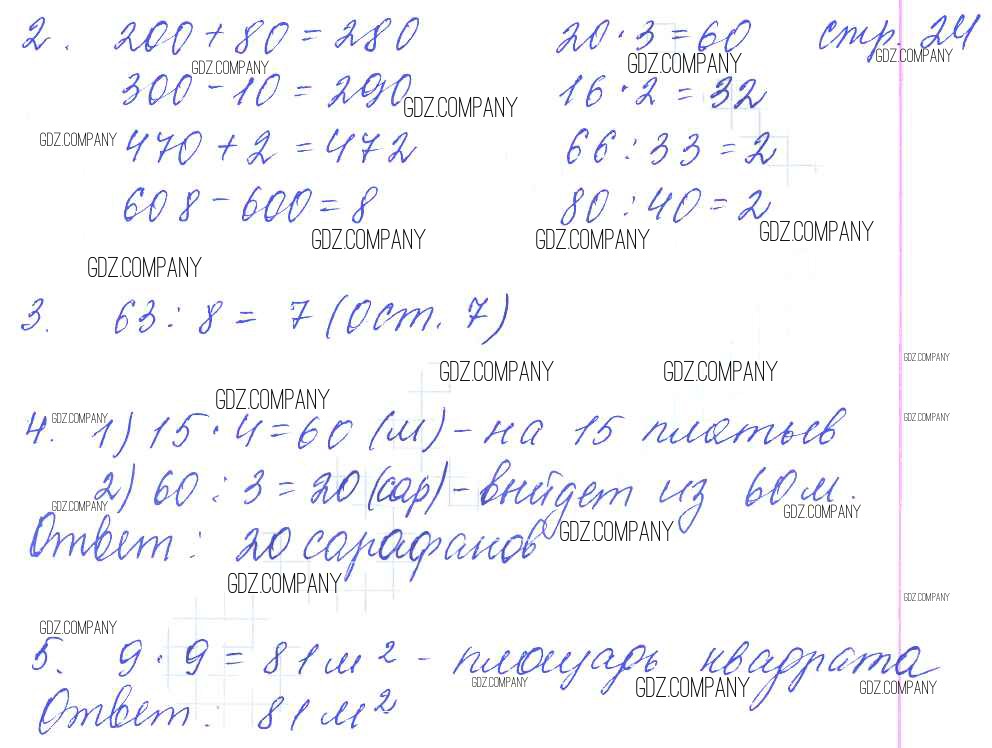 2. 200 + 80 = 280 20 · 3 = 60 стр. 24
GDZ.COMPANY GDZ.COMPANY GDZ.COMPANY
300 - 10 = 290 16 · 2 = 32
GDZ.COMPANY
GDZ.COMPANY 470 + 2 = 472 66 : 33 = 2
608 - 600 = 8 80 : 40 = 2
GDZ.COMPANY GDZ.COMPANY GDZ.COMPANY
GDZ.COMPANY
3. 63 : 8 = 7 (Ост. 7)
GDZ.COMPANY GDZ.COMPANY GDZ.COMPANY
GDZ.COMPANY
GDZ.COMPANY GDZ.COMPANY
4. 1) 15 · 4 = 60 (м) - на 15 платьев
2) 60 : 3 = 20 (сар) - выйдет из 60 м.
GDZ.COMPANY GDZ.COMPANY
Ответ : 20 сарафанов
GDZ.COMPANY
GDZ.COMPANY
GDZ.COMPANY
GDZ.COMPANY
5. 9 · 9 = 81 м² - площадь квадрата
GDZ.COMPANY GDZ.COMPANY GDZ.COMPANY
Ответ : 81 м²